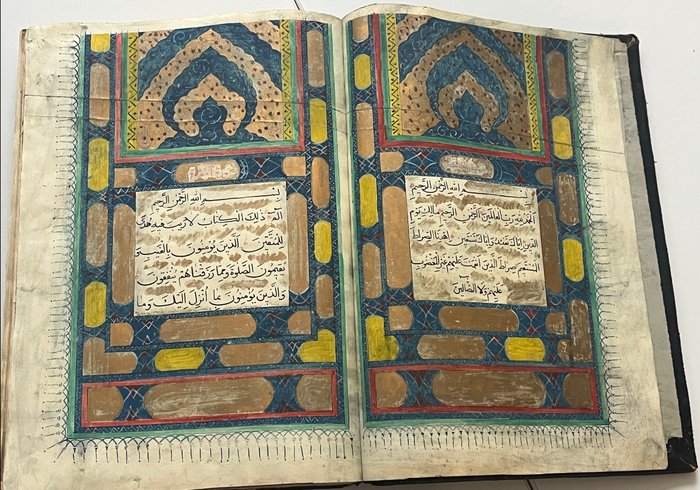 بسم الله الرحمن الرحيم
الحمد لله رب العالمين الرحمن الرحيم مالك يوم
الدين اياك نعبد واياك نستعين اهدنا الصراط
المستقيم صراط الذين انعمت عليهم غير المغضوب
عليهم ولا الضالين
بسم الله الرحمن الرحيم
الم ذلك الكتاب لا ريب فيه هدى
للمتقين الذين يؤمنون بالغيب و
يقيمون الصلوة ومما رزقناهم ينفقون
والذين يؤمنون بما انزل اليك وما